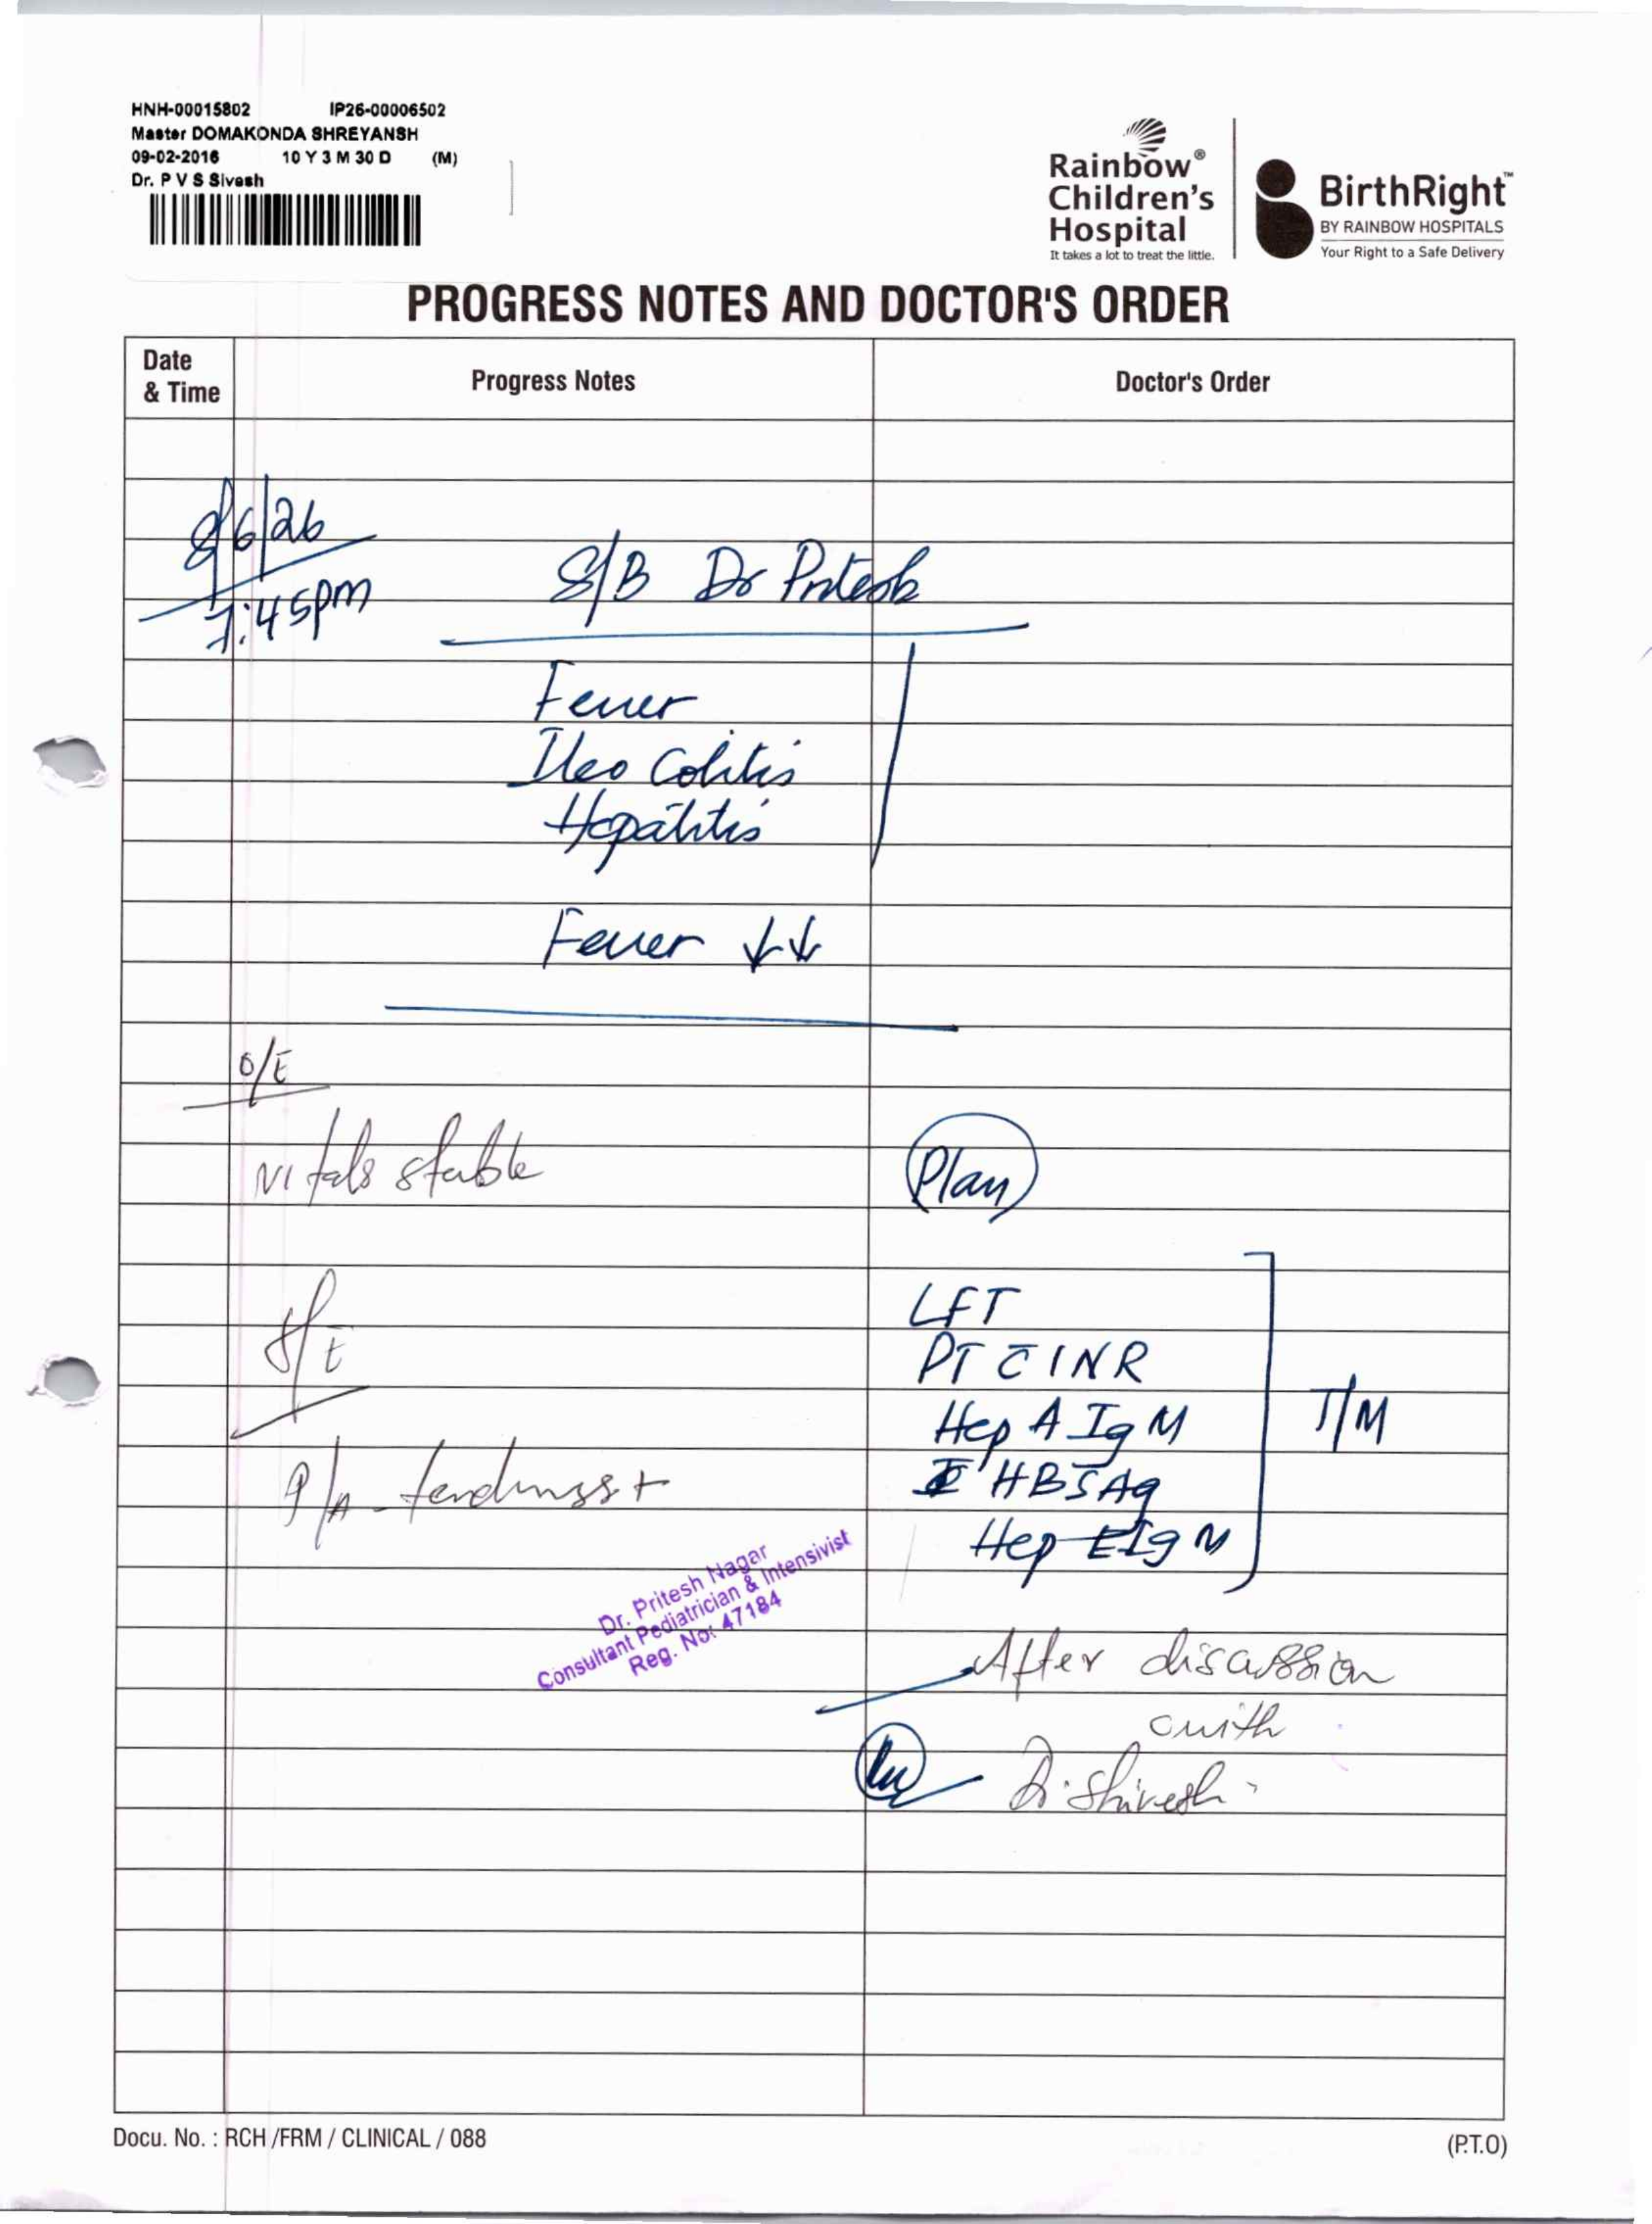 HNH-00015802 IP26-00006502
Master DOMAKONDA SHREYANSH
09-02-2016 10 Y 3 M 30 D (M)
Dr. P V S Sivesh
Rainbow®
Children's
Hospital
It takes a lot to treat the little.
BirthRight™
BY RAINBOW HOSPITALS
Your Right to a Safe Delivery
PROGRESS NOTES AND DOCTOR'S ORDER
Date & Time Progress Notes Doctor's Order
/6/26
:45pm
S/B Dr Pritesh
Fever
Ileo Colitis
Hepatitis
Fever ↓↓
O/E
Vitals stable
Plan
S/E
LFT
PT c̄ INR
Hep A IgM
T/M
HBSAg
P/A - tenderness +
Hep E IgM
Dr. Pritesh Nagar
Consultant Pediatrician & Intensivist
Reg. No: 47184
After discussion
with
Dr. Shivesh.
Docu. No. : RCH /FRM / CLINICAL / 088
(P.T.O)